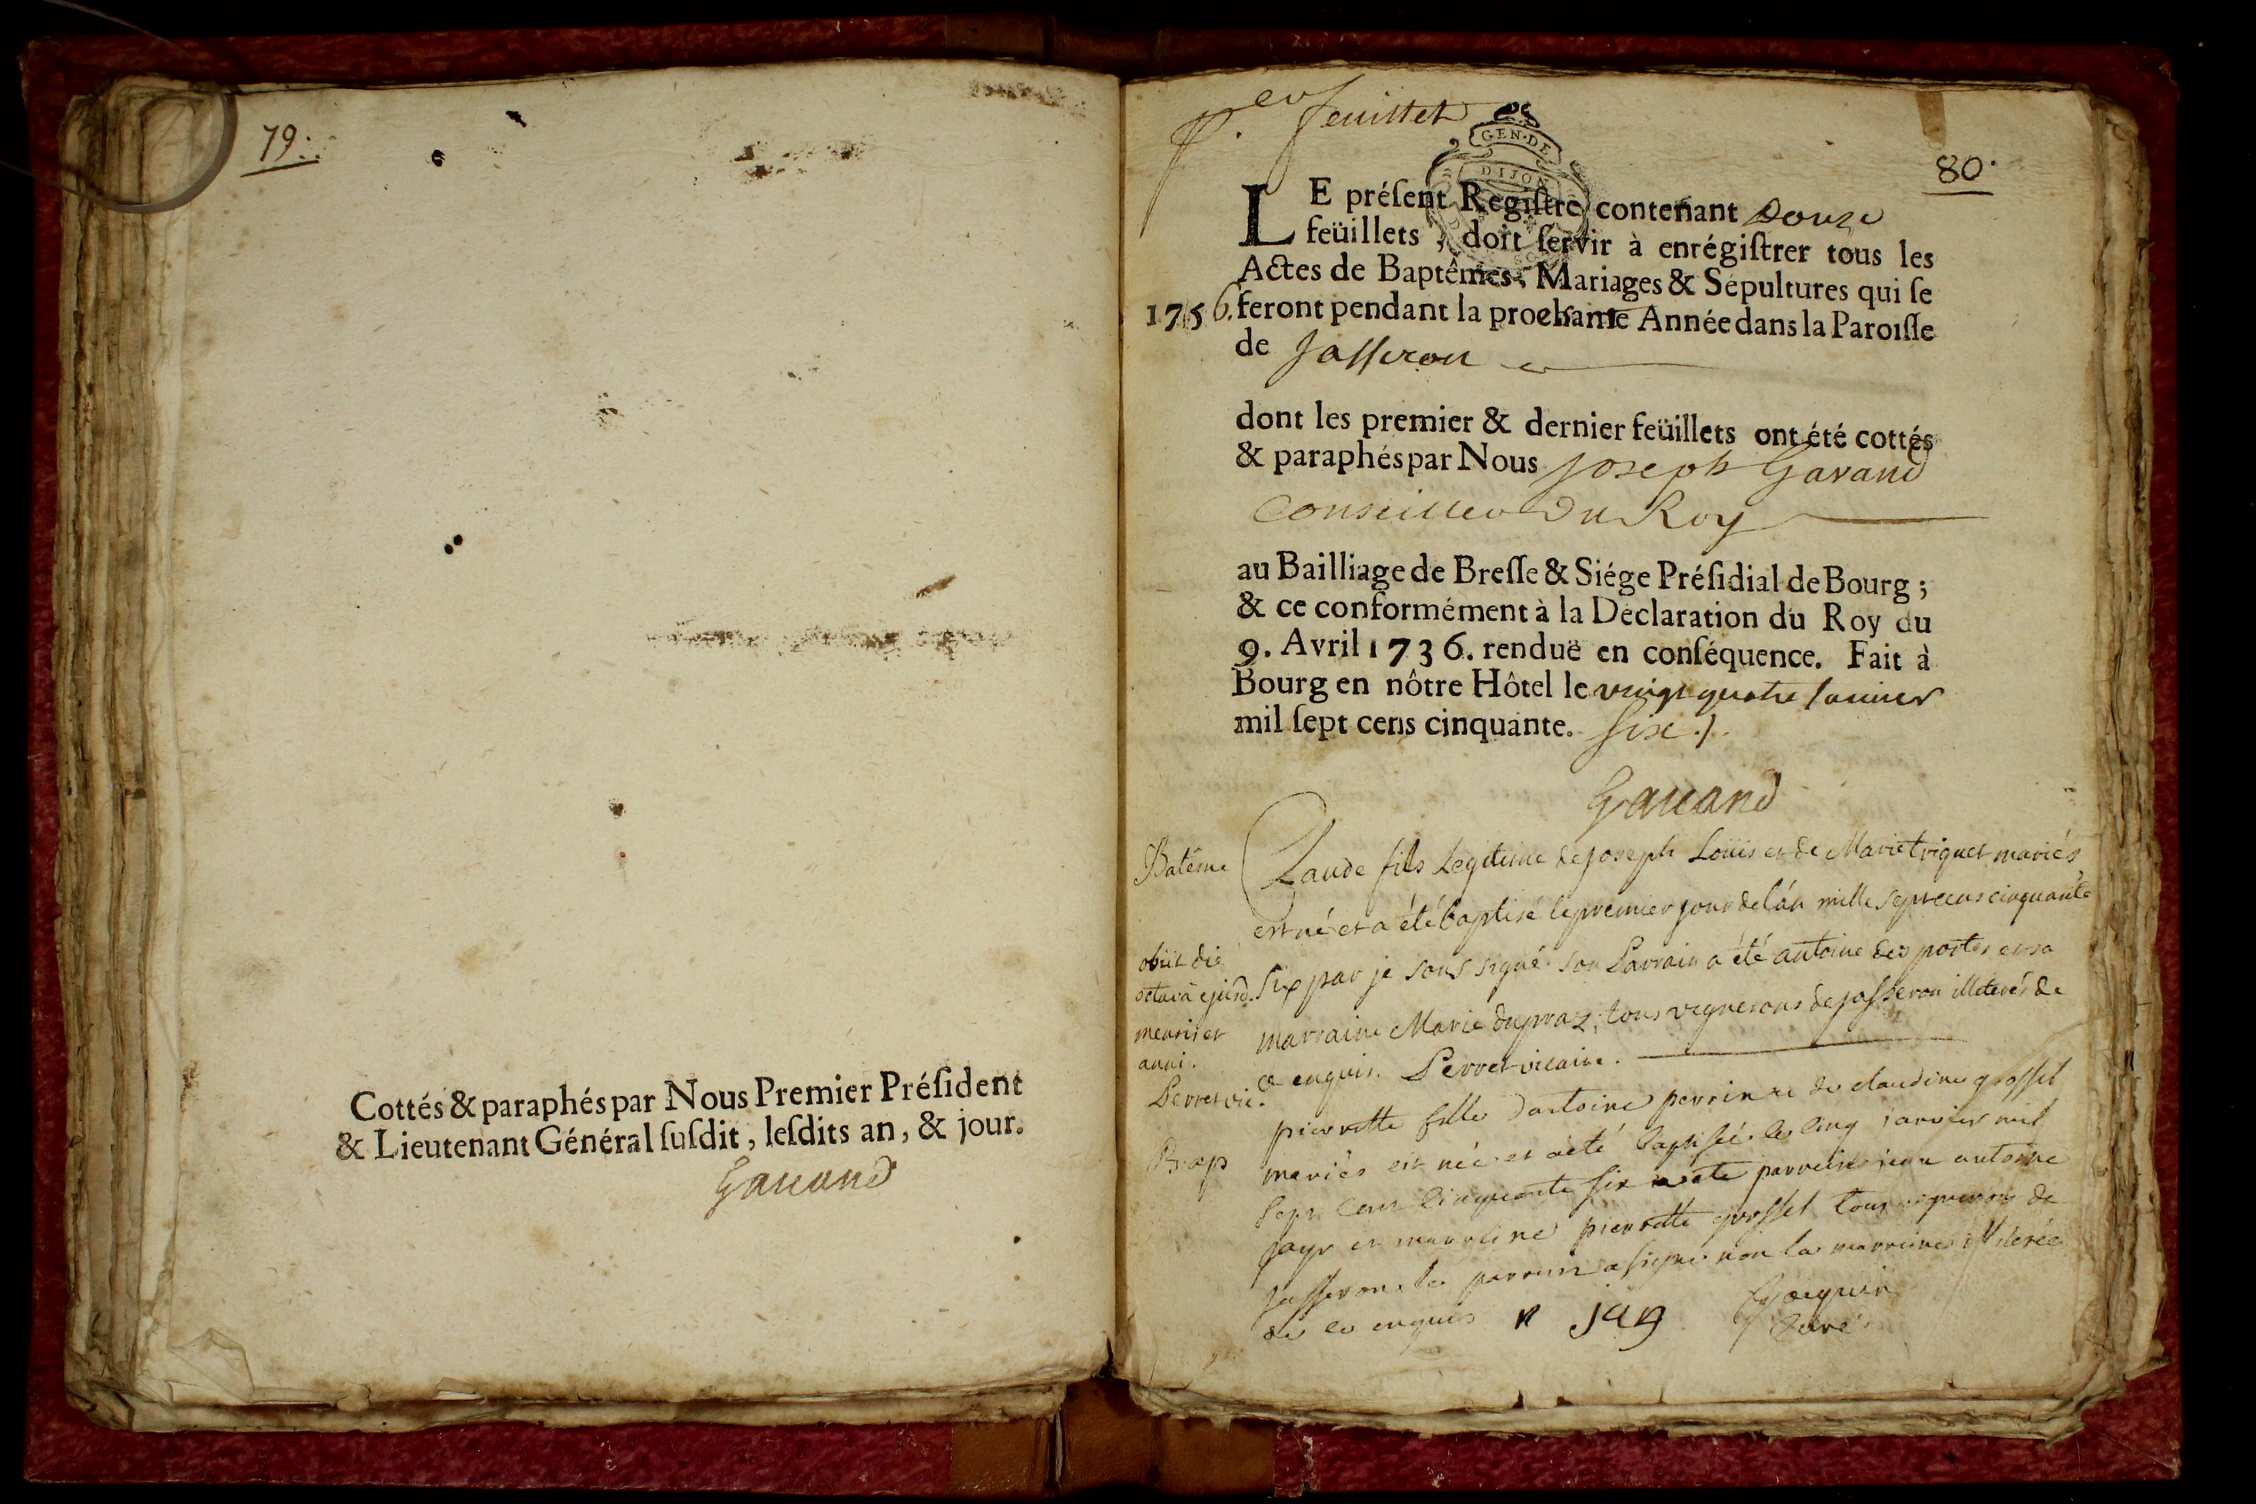 79.
Cottés & paraphés par Nous Premier Préſident
& Lieutenant Général ſuſdit, leſdits an, & jour.
Gauand
feuillet
GEN·DE
DIJON
80.
LE préſent Regiſtre contenant Douze
feüillets, doit ſervir à enrégiſtrer tous les
Actes de Baptêmes, Mariages & Sépultures qui ſe
1756. feront pendant la prochaine Année dans la Paroiſſe
de Jasseron
dont les premier & dernier feüillets ont été cottés
& paraphés par Nous Joseph Gavand
Conseiller Du Roy
au Bailliage de Breſſe & Siége Préſidial de Bourg ;
& ce conformément à la Déclaration du Roy du
9. Avril 1736. renduë en conſéquence. Fait à
Bourg en nôtre Hôtel le vingt quatre Janvier
mil ſept cens cinquante. six
Gauand
Batême
Claude fils Legitime de joseph Loüis et de Marie triquet mariés
est né et a été baptisé le premier jour de l'an mille sept cens cinquante
six par je sous signé son Parrain a été antoine des portes et sa
marraine Marie dupraz, tous vignerons de jasseron illiterés de
ce enquis. Perret vicaire.
obiit die
octavâ ejusd.
mensis et
anni.
Perret vic.
Bap
pierrette fille d'antoine perrin et de claudine grosset
mariés est née et a eté baptisée le cinq janvier mil
sept cens cinquante six a eté parrein jean antoine
jayr et marreine pierrette grosset tous vignerons de
jasseron le parrein a signé non la marreine illiterée
de ce enquis JAJ Jacquin
Curé